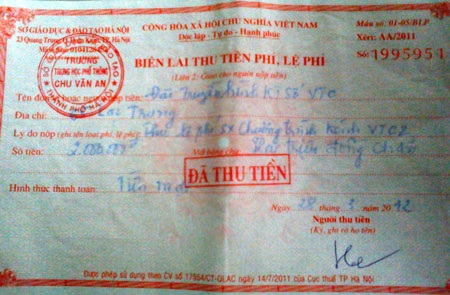 SỞ GIÁO DỤC & ĐÀO TẠO HÀ NỘI
23 Quang Trung, Q. Hoàn Kiếm, TP. Hà Nội
CỘNG HÒA XÃ HỘI CHỦ NGHĨA VIỆT NAM
Độc lập - Tự do - Hạnh phúc
Mẫu số: 01-05/BLP
Xêri: AA/2011
Số: 1995951
TRƯỜNG
TRUNG HỌC PHỔ THÔNG
CHU VĂN AN
THÀNH PHỐ HÀ NỘI
BIÊN LAI THU TIỀN PHÍ, LỆ PHÍ
(Liên 2: Giao cho người nộp tiền)
Tên đơn vị hoặc người nộp tiền: Đài Truyền hình Kĩ Số VTC
Địa chỉ: Lạc Trung
Lý do nộp (ghi tên loại phí, lệ phí): lệ phí SX Chương trình kênh VTC2
Số tiền: 2.000.000 Viết bằng chữ: Hai triệu đồng chẵn
ĐÃ THU TIỀN
Hình thức thanh toán: Tiền mặt
Ngày 28 tháng 2012
Người thu tiền
(Ký, ghi rõ họ tên)
Được phép sử dụng theo CV số 17954/CT-QLAC ngày 14/7/2011 của Cục thuế TP Hà Nội